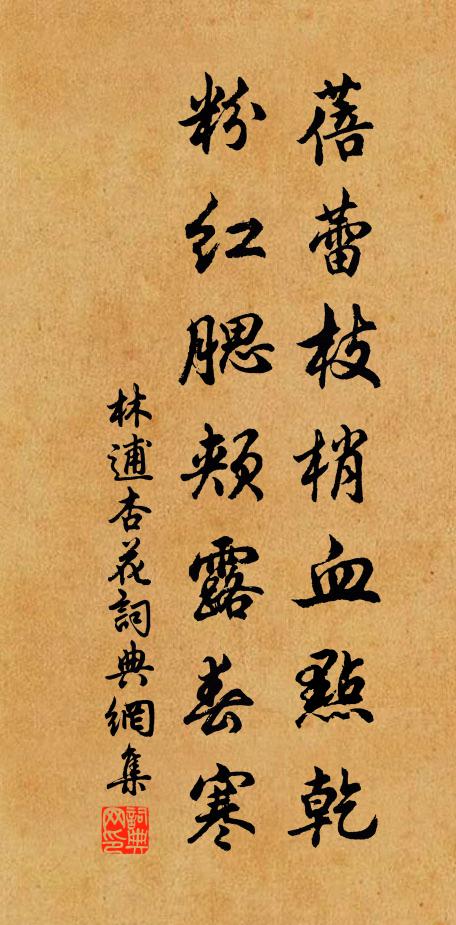 蓓蕾枝梢血點乾
粉紅腮頰露春寒
林逋杏花詞典網集
詞典網印